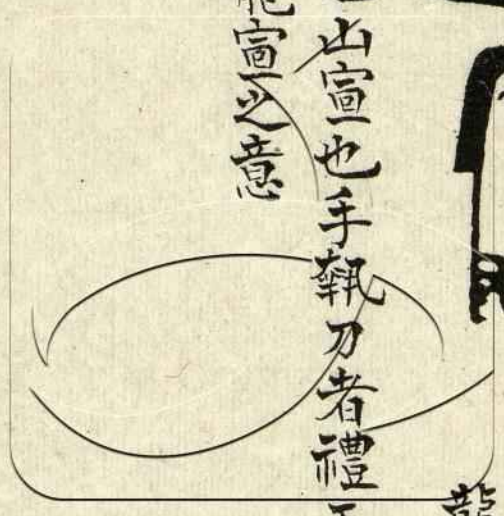 龍
山宣也手執刀者禮
宣之意